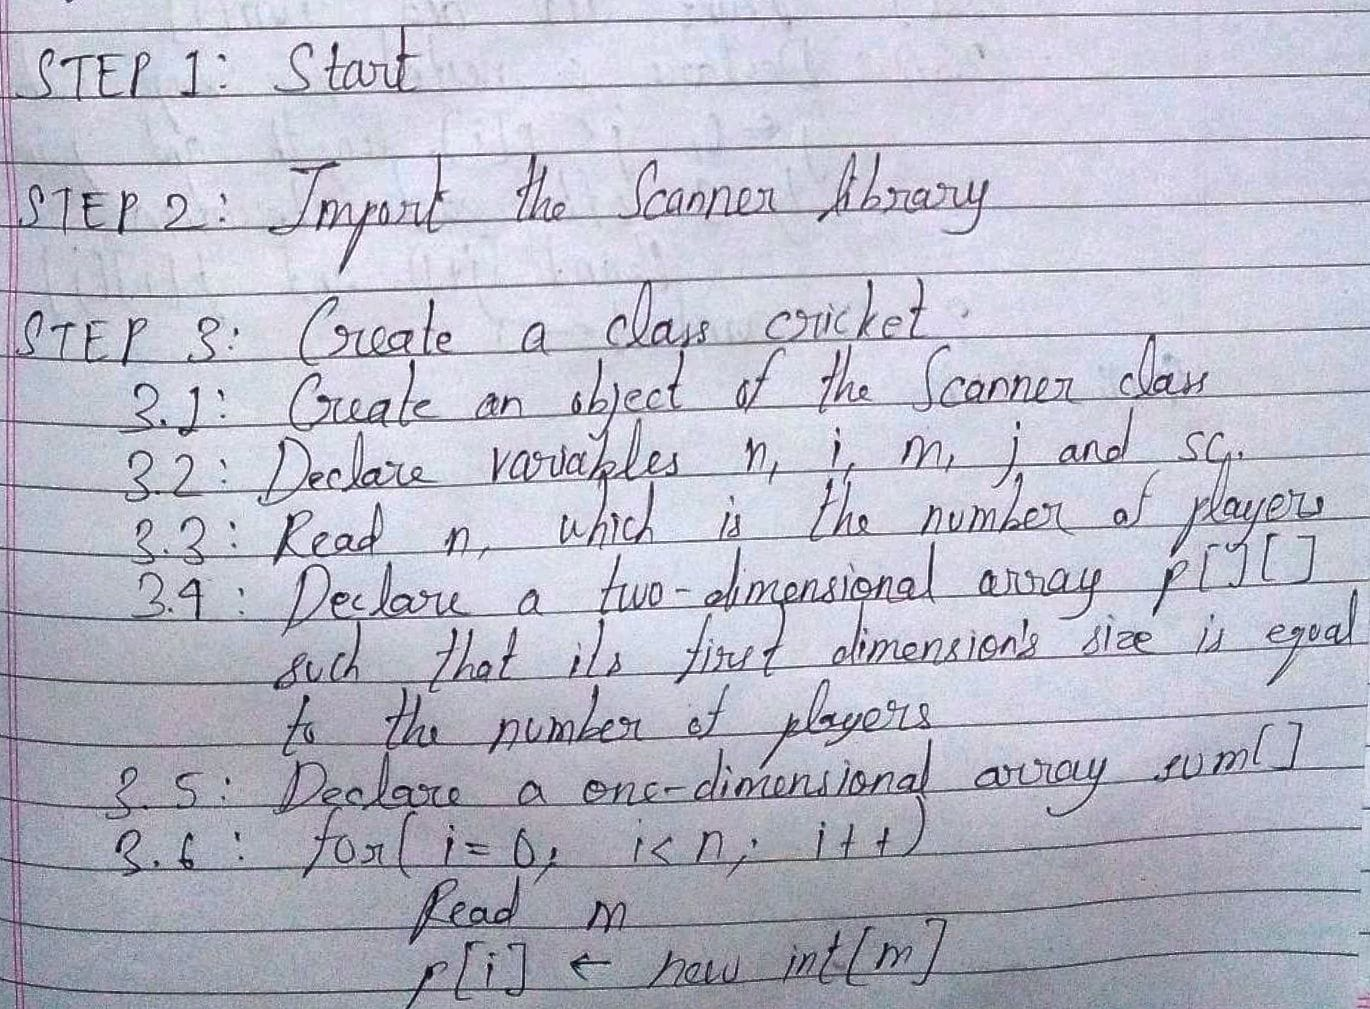 STEP 1: Start
STEP 2: Import the Scanner library
STEP 3: Create a class cricket.
3.1: Create an object of the Scanner class
3.2: Declare variables n, i, m, j and sc.
3.3: Read n, which is the number of players
3.4: Declare a two-dimensional array p[][]
such that its first dimension's size is equal
to the number of players
3.5: Declare a one-dimensional array sum[]
3.6: for( i=0; i<n; i++)
Read m
p[i] ← new int[m]